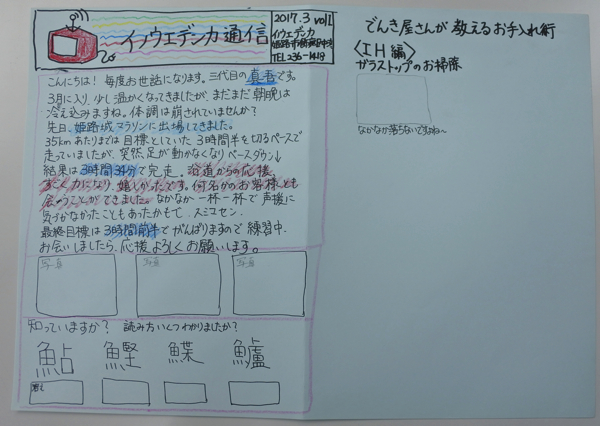 イノウエデンカ通信
2017.3 vol1
イノウエデンカ
TEL 236-1419
こんにちは!毎度お世話になります。三代目の真吾です。
3月に入り、少し温かくなってきましたが、まだまだ朝晩は
冷え込みますね。体調は崩されていませんか?
先日、姫路城マラソンに出場してきました。
35kmあたりまでは目標としていた3時間半を切るペースで
走っていましたが、突然足が動かなくなりペースダウン↓
結果は3時間34分で完走。沿道からの応援、
すごく力になり、嬉しかったです。何名かのお客様とも
会うことができました。なかなか一杯一杯で声援に
気づかなかったこともあったかもで、スミマセン。
最終目標は3時間前半でがんばりますので練習中、
お会いしましたら、応援よろしくお願いします。
写真
写真
写真
知っていますか? 読み方いくつわかりましたか?
鮎 鰹 鰈 鱸
答え
でんき屋さんが教えるお手入れ術
〈IH編〉
ガラストップのお掃除
なかなか落ちないですね〜